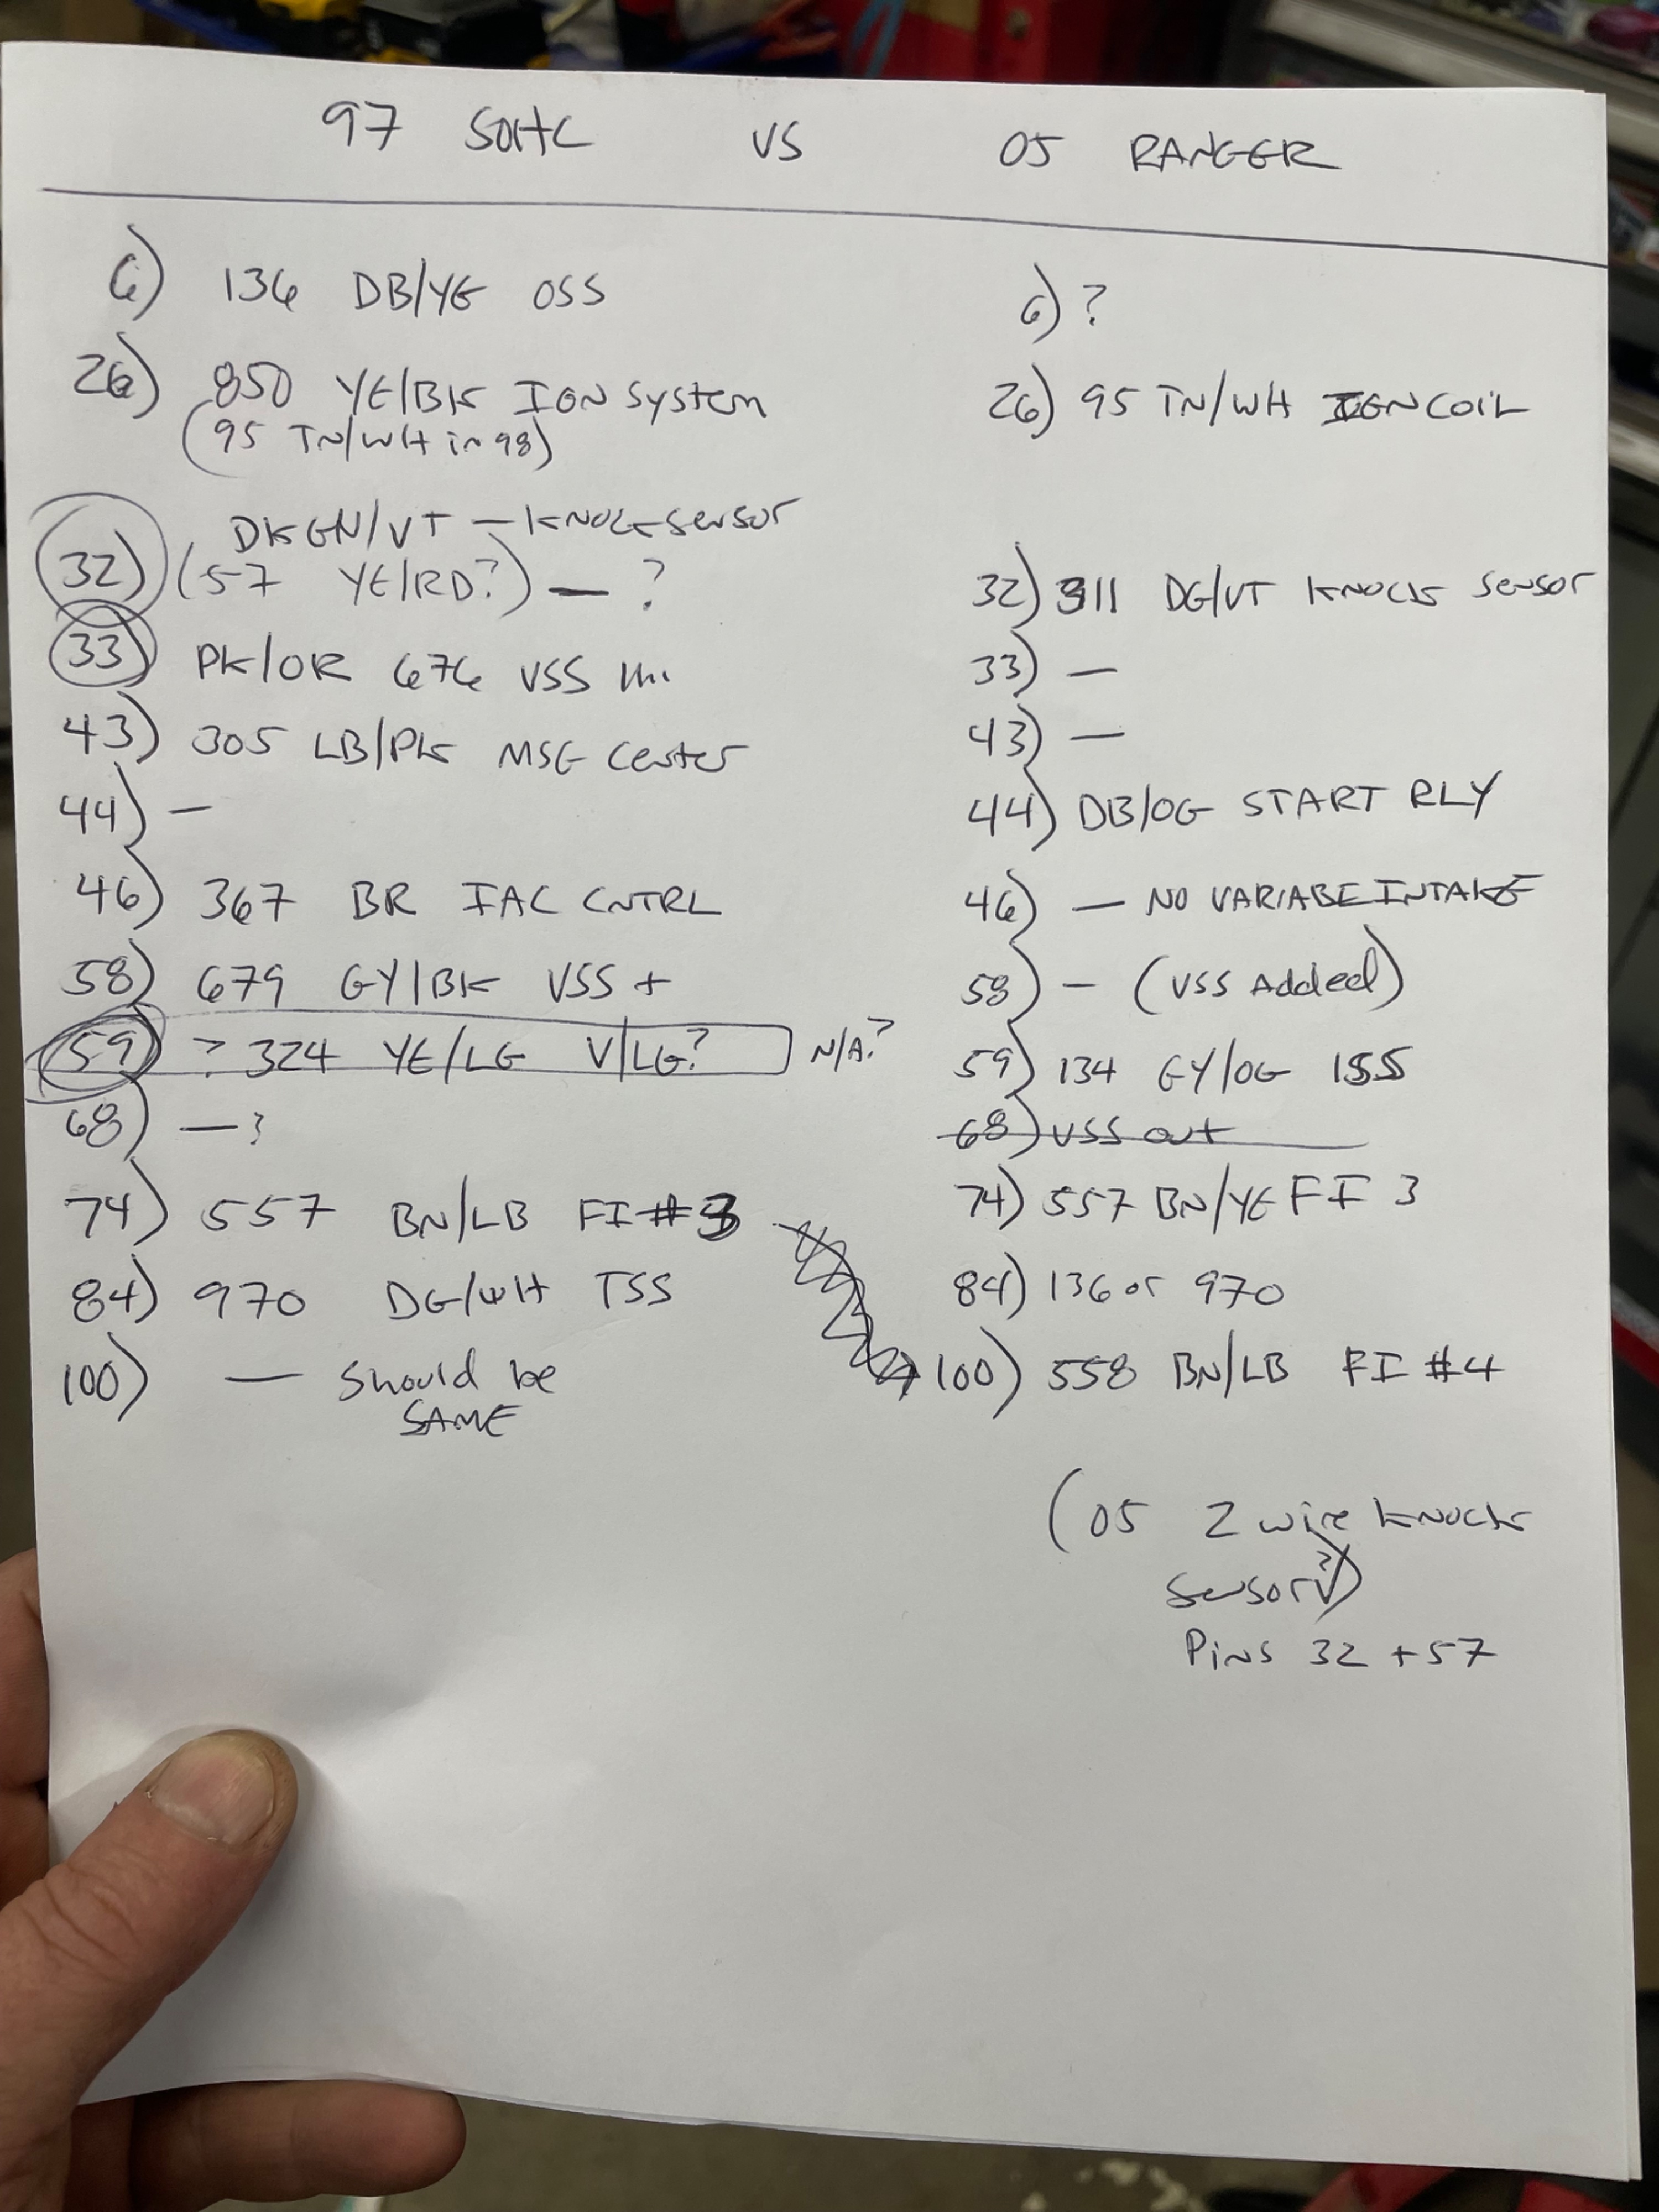 97 SOHC VS 05 RANGER
6) 136 DB/YE OSS 6) ?
26) 850 YE/BK IGN System 26) 95 TN/WH IGN COIL
(95 TN/WH in 98)
DKGN/VT — KNOCK Sensor
32) (57 YE/RD?) — ? 32) 311 DG/VT KNOCK Sensor
33) PK/OR 676 VSS 33) —
43) 305 LB/PK MSG Center 43) —
44) — 44) DB/OG START RLY
46) 367 BR IAC CNTRL 46) — NO VARIABE INTAKE
58) 679 GY/BK VSS + 58) — (VSS Added)
59) ? 324 YE/LG V/LG? N/A? 59) 134 GY/OG ISS
68) —? 68) VSS out
74) 557 BN/LB FI #3 74) 557 BN/YE FI 3
84) 970 DG/WH TSS 84) 136 or 970
100) — Should be 100) 558 BN/LB FI #4
SAME
(05 2 wire KNOCK
Sensor?)
PiNS 32 + 57